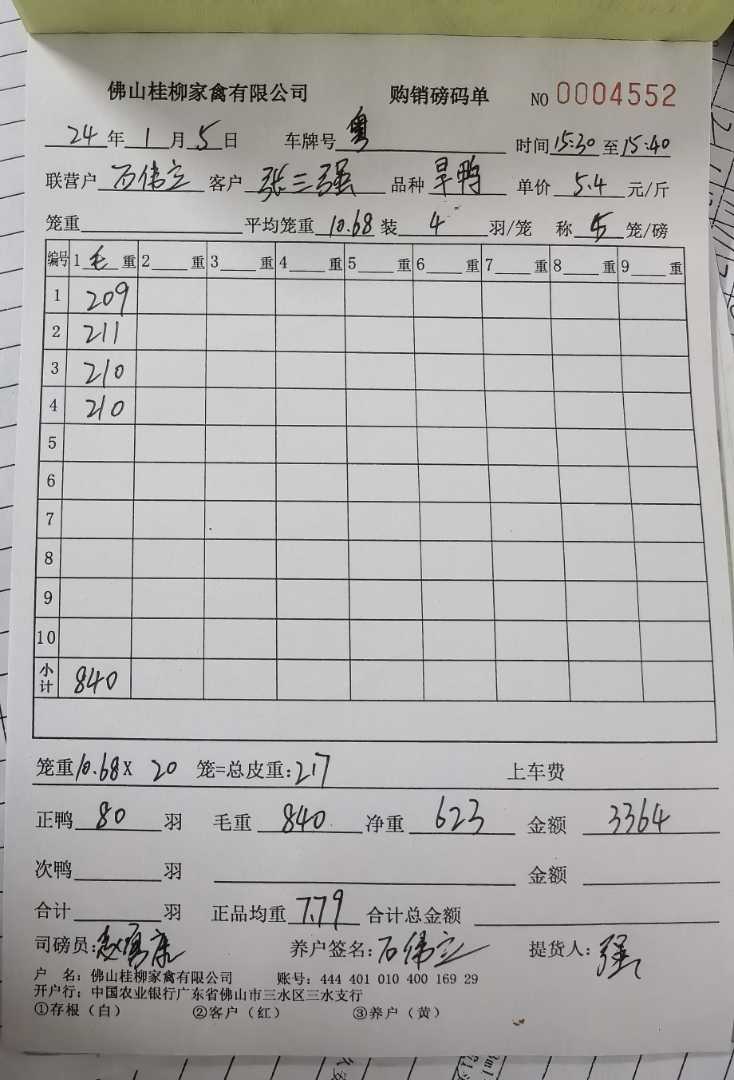 佛山桂柳家禽有限公司 购销磅码单 NO 0004552
24年1月5日 车牌号粤 时间15:30至15:40
联营户石伟立 客户张三强 品种旱鸭 单价5.4元/斤
笼重 平均笼重10.68装4羽/笼 称5笼/磅
编号 1毛重 2重 3重 4重 5重 6重 7重 8重 9重
1 209
2 211
3 210
4 210
5
6
7
8
9
10
小计 840
笼重10.68X 20笼=总皮重:217 上车费
正鸭80羽 毛重840净重623 金额3364
次鸭羽 金额
合计羽 正品均重7.79合计总金额
司磅员: 养户签名:石伟立 提货人:强
户 名:佛山桂柳家禽有限公司 账号:444 401 010 400 169 29
开户行:中国农业银行广东省佛山市三水区三水支行
①存根(白) ②客户(红) ③养户(黄)